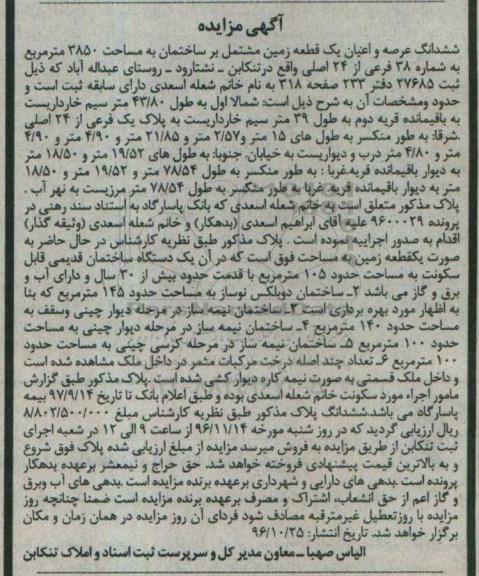 آگهی مزایده
ششدانگ عرصه و اعیان یک قطعه زمین مشتمل بر ساختمان به مساحت ۳۸۵۰ مترمربع
به شماره ۳۸ فرعی از ۲۴ اصلی واقع درتنکابن ـ نشتارود ـ روستای عبداله آباد که ذیل
ثبت ۲۷۶۸۵ دفتر ۲۳۳ صفحه ۳۱۸ به نام خانم شعله اسعدی دارای سابقه ثبت است و
حدود ومشخصات آن به شرح ذیل است: شمالا اول به طول ۴۳/۸۰ متر سیم خارداریست
به باقیمانده قریه دوم به طول ۳۹ متر سیم خارداریست به پلاک یک فرعی از ۲۴ اصلی
.شرقا: به طور منکسر به طول های ۱۵ متر و۲/۵۷ متر و ۲۱/۸۵ متر و ۴/۹۰ متر و ۴/۹۰
متر و ۴/۸۰ متر درب و دیواریست به خیابان. جنوبا: به طول های ۱۹/۵۲ متر و ۱۸/۵۰ متر
به دیوار باقیمانده قریه.غربا : به طور منکسر به طول ۷۸/۵۴ متر و ۱۹/۵۲ متر و ۱۸/۵۰
متر به دیوار باقیمانده قریه. غربا به طور منکسر به طول ۷۸/۵۴ متر مرزیست به نهر آب .
پلاک مذکور متعلق است به خانم شعله اسعدی که بانک پاسارگاد به استناد سند رهنی در
پرونده ۹۶۰۰۰۲۹ علیه آقای ابراهیم اسعدی (بدهکار) و خانم شعله اسعدی (وثیقه گذار)
اقدام به صدور اجراییه نموده است . پلاک مذکور طبق نظریه کارشناس در حال حاضر به
صورت یکقطعه زمین به مساحت فوق است که در آن یک دستگاه ساختمان قدیمی قابل
سکونت به مساحت حدود ۱۰۵ مترمربع با قدمت حدود بیش از ۳۰ سال و دارای آب و
برق و گاز می باشد ۲ـ ساختمان دوبلکس نوساز به مساحت حدود ۱۴۵ مترمربع که بنا
به اظهار مورد بهره برداری است ۳ـ ساختمان نیمه ساز در مرحله دیوار چینی وسقف به
مساحت حدود ۱۴۰ مترمربع ۴ـ ساختمان نیمه ساز در مرحله دیوار چینی به مساحت
حدود ۱۰۰ مترمربع ۵ـ ساختمان نیمه ساز در مرحله کرسی چینی به مساحت حدود
۱۰۰ مترمربع ۶ـ تعداد چند اصله درخت مرکبات مثمر در داخل ملک مشاهده شده است
و داخل ملک قسمتی به صورت نیمه کاره دیوار کشی شده است .پلاک مذکور طبق گزارش
مامور اجراء مورد سکونت خانم شعله اسعدی بوده و طبق اعلام بانک تا تاریخ ۹۷/۹/۱۴ بیمه
پاسارگاد می باشد.ششدانگ پلاک مذکور طبق نظریه کارشناس مبلغ ۸/۸۰۲/۵۰۰/۰۰۰
ریال ارزیابی گردید که در روز شنبه مورخه ۹۶/۱۱/۱۴ از ساعت ۹ الی ۱۲ در شعبه اجرای
ثبت تنکابن از طریق مزایده به فروش میرسد مزایده از مبلغ ارزیابی شده پلاک فوق شروع
و به بالاترین قیمت پیشنهادی فروخته خواهد شد. حق حراج و نیمعشر برعهده بدهکار
پرونده است .بدهی های دارایی و شهرداری برعهده برنده مزایده است .بدهی های آب وبرق
و گاز اعم از حق انشعاب، اشتراک و مصرف برعهده برنده مزایده است ضمنا چنانچه روز
مزایده با روزتعطیل غیرمترقبه مصادف شود فردای آن روز مزایده در همان زمان و مکان
برگزار خواهد شد. تاریخ انتشار: ۹۶/۱۰/۲۵
الیاس صهبا ـ معاون مدیر کل و سرپرست ثبت اسناد و املاک تنکابن